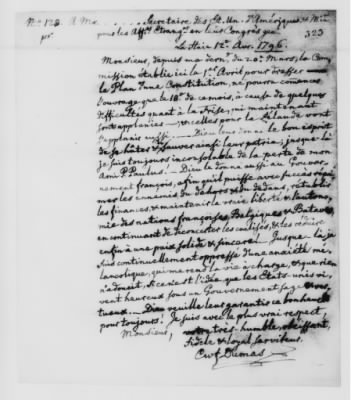 No. 128. A Mr. . . . . . . Secretaire des Et. Un. d'Amérique & Min
pr. pour les Aff. Etrang. en leur Congrès gral.
323
La Haie 12e. Avr. 1796.
Monsieur, depuis ma dern. du 20e. Mars, la Com
mission établie ici le 1er. Avril pour dresser
le Plan d'une Constitution, ne pourra commencer
l'ouvrage que le 18e. de ce mois, à cause de quelques
difficultés quant à la Frise, qui maintenant
sont applanies; celles pour la Zélande vont
s'applanir aussi. — Dieu leur donne le bon esprit
de se hâter & sauver ainsi leur patrie, jusque là
je suis toujours inconsolable de la perte de mon
ami P. Paulus. — Dieu le donne aussi au Gouver-
nement françois, afin qu'il puisse avec succès répri-
mer les ennemis du dehors & du dedans, rétablir
les finances, & maintenir la vraie liberté & l'autono-
mie des nations françoise, Belgique & Batave,
en continuant de déconcerter les coalisés, & les réduire
enfin à une paix solide & sincere. Jusque là je
suis continuellement oppressé d'une anxiété mé-
lancolique, qui me rend la vie à charge, & que rien
n'adoucit, si ce n'est l'idée que les Etats-unis vi-
vent heureux sous un Gouvernement sage & ver-
tueux. — Dieu veuille leur garantir ce bonheur
pour toujours! Je suis avec le plus vrai respect,
Monsieur, votre très-humble, obéissant,
fidele & loyal serviteur
Cwf Dumas